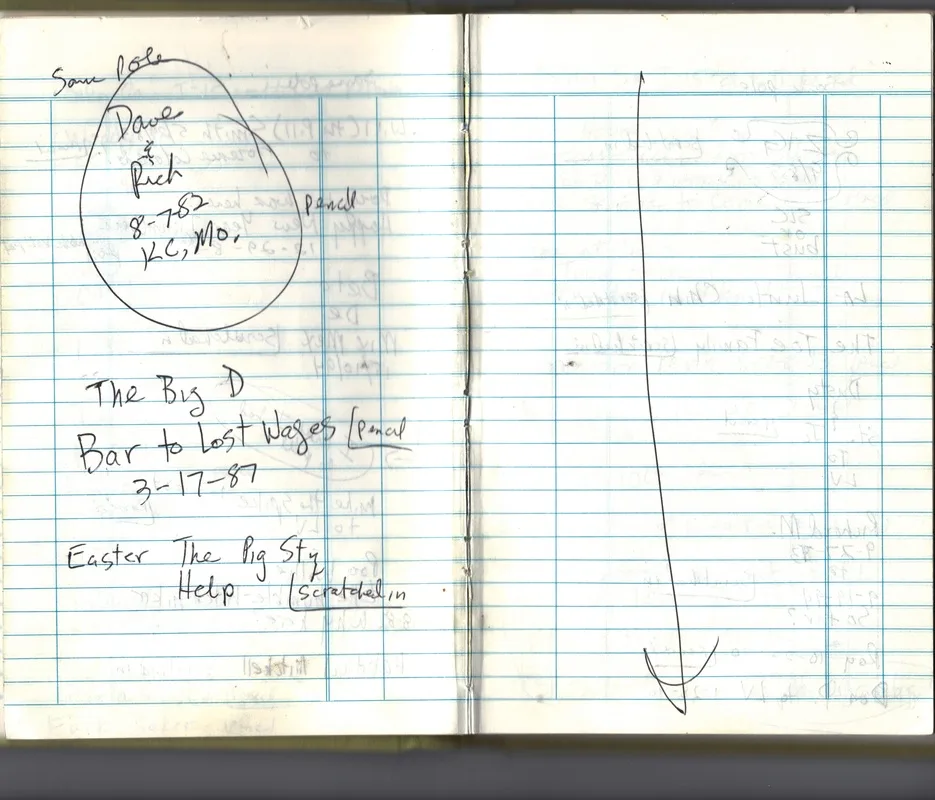 Same Pole
Dave
&
Rich
8-7-82
KC, Mo.
pencil
The Big D
Bar to Lost Wages [pencil
3-17-87
Easter The Pig Sty
Help [scratched in